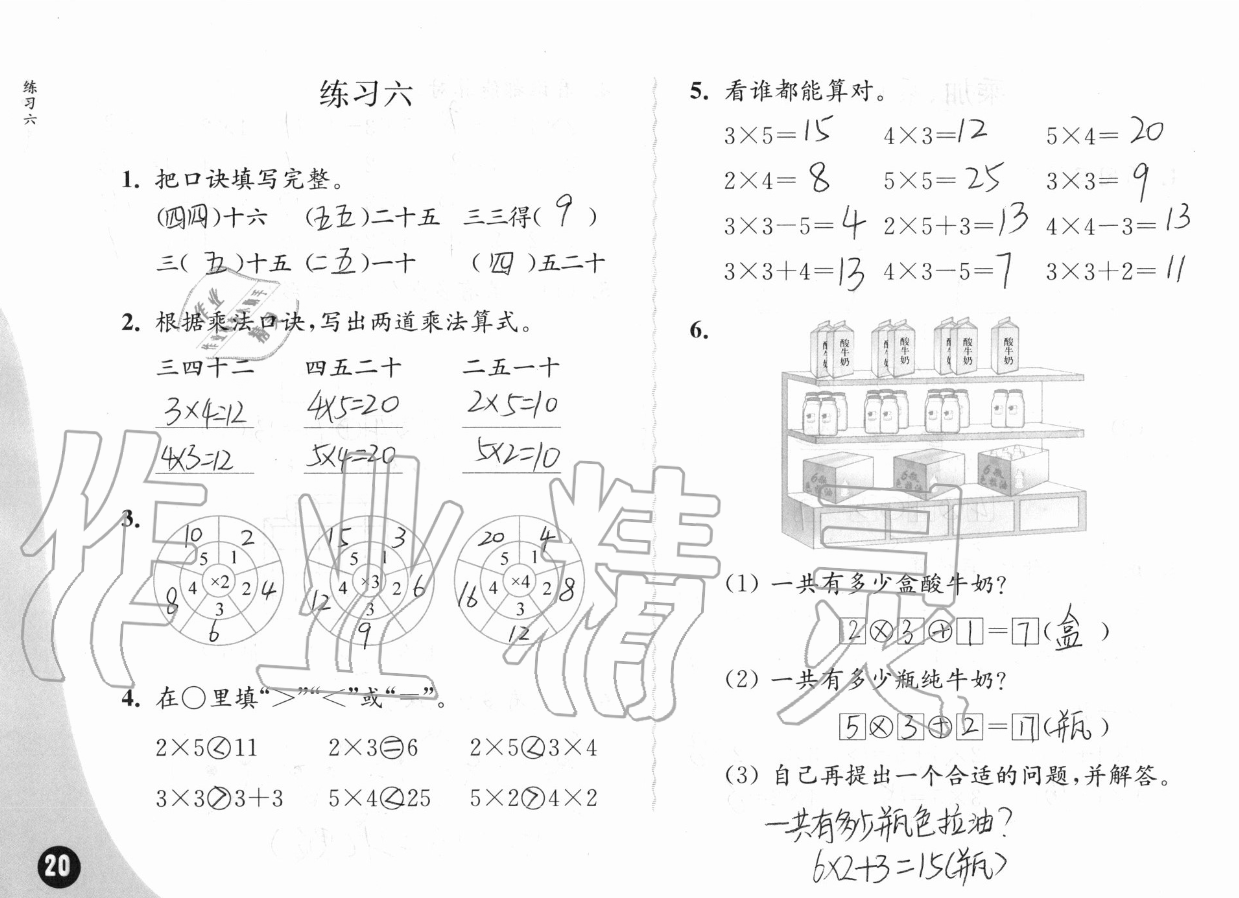 练习六
练习六
1. 把口诀填写完整。
(四四)十六 (五五)二十五 三三得( 9 )
三( 五 )十五 (二五)一十 ( 四 )五二十
2. 根据乘法口诀,写出两道乘法算式。
三四十二 四五二十 二五一十
3×4=12 4×5=20 2×5=10
4×3=12 5×4=20 5×2=10
3.
10 2 15 3 20 4
5 1 5 1 5 1
8 4 ×2 2 4 12 4 ×3 2 6 16 4 ×4 2 8
3 3 3
6 9 12
4. 在○里填“>”“<”或“=”。
2×5<11 2×3=6 2×5<3×4
3×3>3+3 5×4<25 5×2>4×2
20
5. 看谁都能算对。
3×5=15 4×3=12 5×4=20
2×4=8 5×5=25 3×3=9
3×3-5=4 2×5+3=13 4×4-3=13
3×3+4=13 4×3-5=7 3×3+2=11
6.
酸牛奶 酸牛奶 酸牛奶 酸牛奶 酸牛奶
(1) 一共有多少盒酸牛奶?
2×3+1=7(盒 )
(2) 一共有多少瓶纯牛奶?
5×3+2=17(瓶 )
(3) 自己再提出一个合适的问题,并解答。
一共有多少瓶色拉油?
6×2+3=15(瓶)
作业精灵